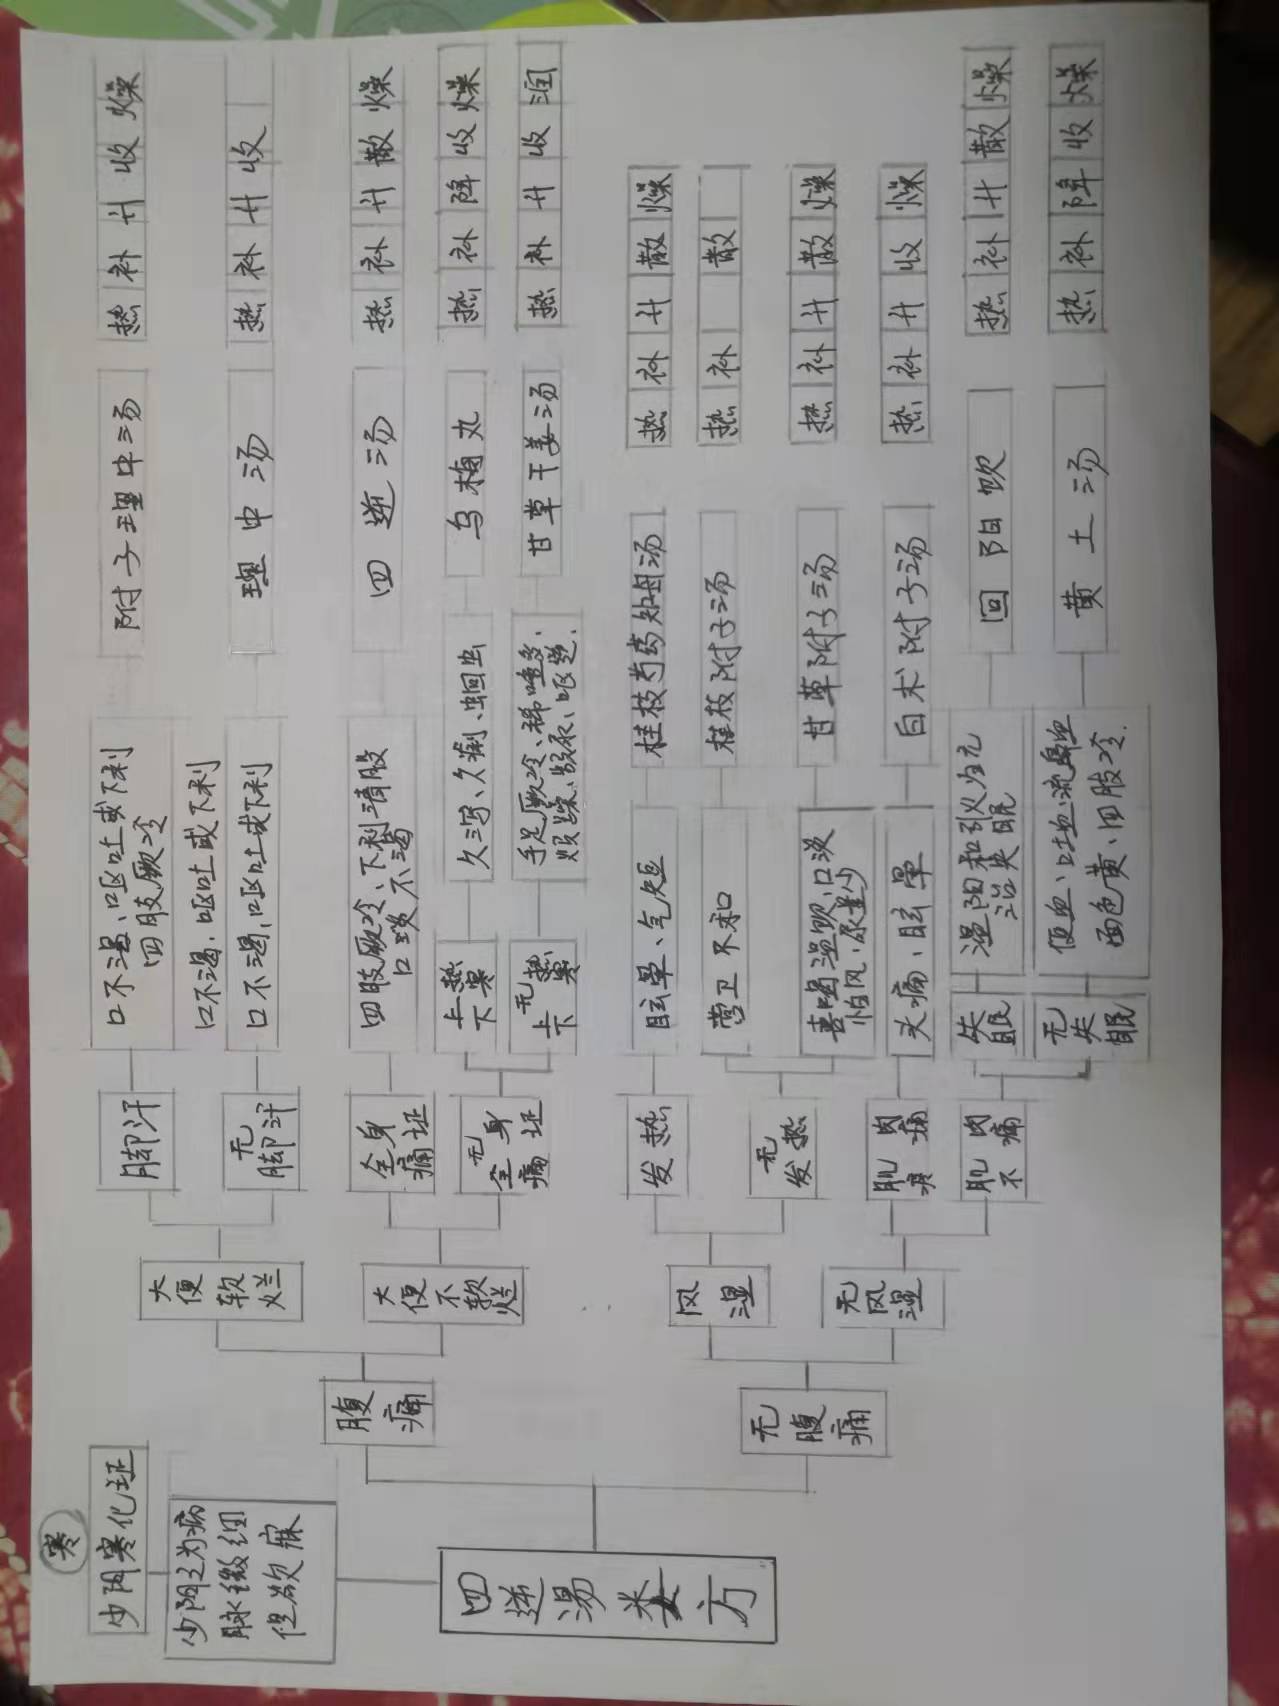 寒
少阴寒化证
少阴之为病
脉微细
但欲寐
四逆汤类方
腹痛
无腹痛
大便软烂
大便不软烂
风湿
无风湿
脚汗
无脚汗
全身痛证
无全身痛证
发热
无发热
肌肉疼痛
肌肉不痛
口不渴、呕吐或下利
四肢厥冷
口不渴,呕吐或下利
口不渴,呕吐或下利
四肢厥冷、下利清
口淡不渴
上热下寒
久泻、久痢、蛔虫
无上热下寒
手足厥冷、稀唾多、
烦躁、
眩晕、气短
营卫不和
喜喝温饮、口淡
怕风、尿量少
头痛、眩晕
失眠
温阳和引火归元
治失眠
无失眠
便血、吐血、流鼻血
面色黄、四肢冷.
附子理中汤
理中汤
四逆汤
乌梅丸
甘草干姜汤
桂枝芍药知母汤
桂枝附子汤
甘草附子汤
白术附子汤
回阳饮
黄土汤
热补升收燥
热补升收
热补升散燥
热补降收燥
热补升收润
热补升散燥
热补散
热补升散燥
热补升收燥
热补升散燥
热补降收燥